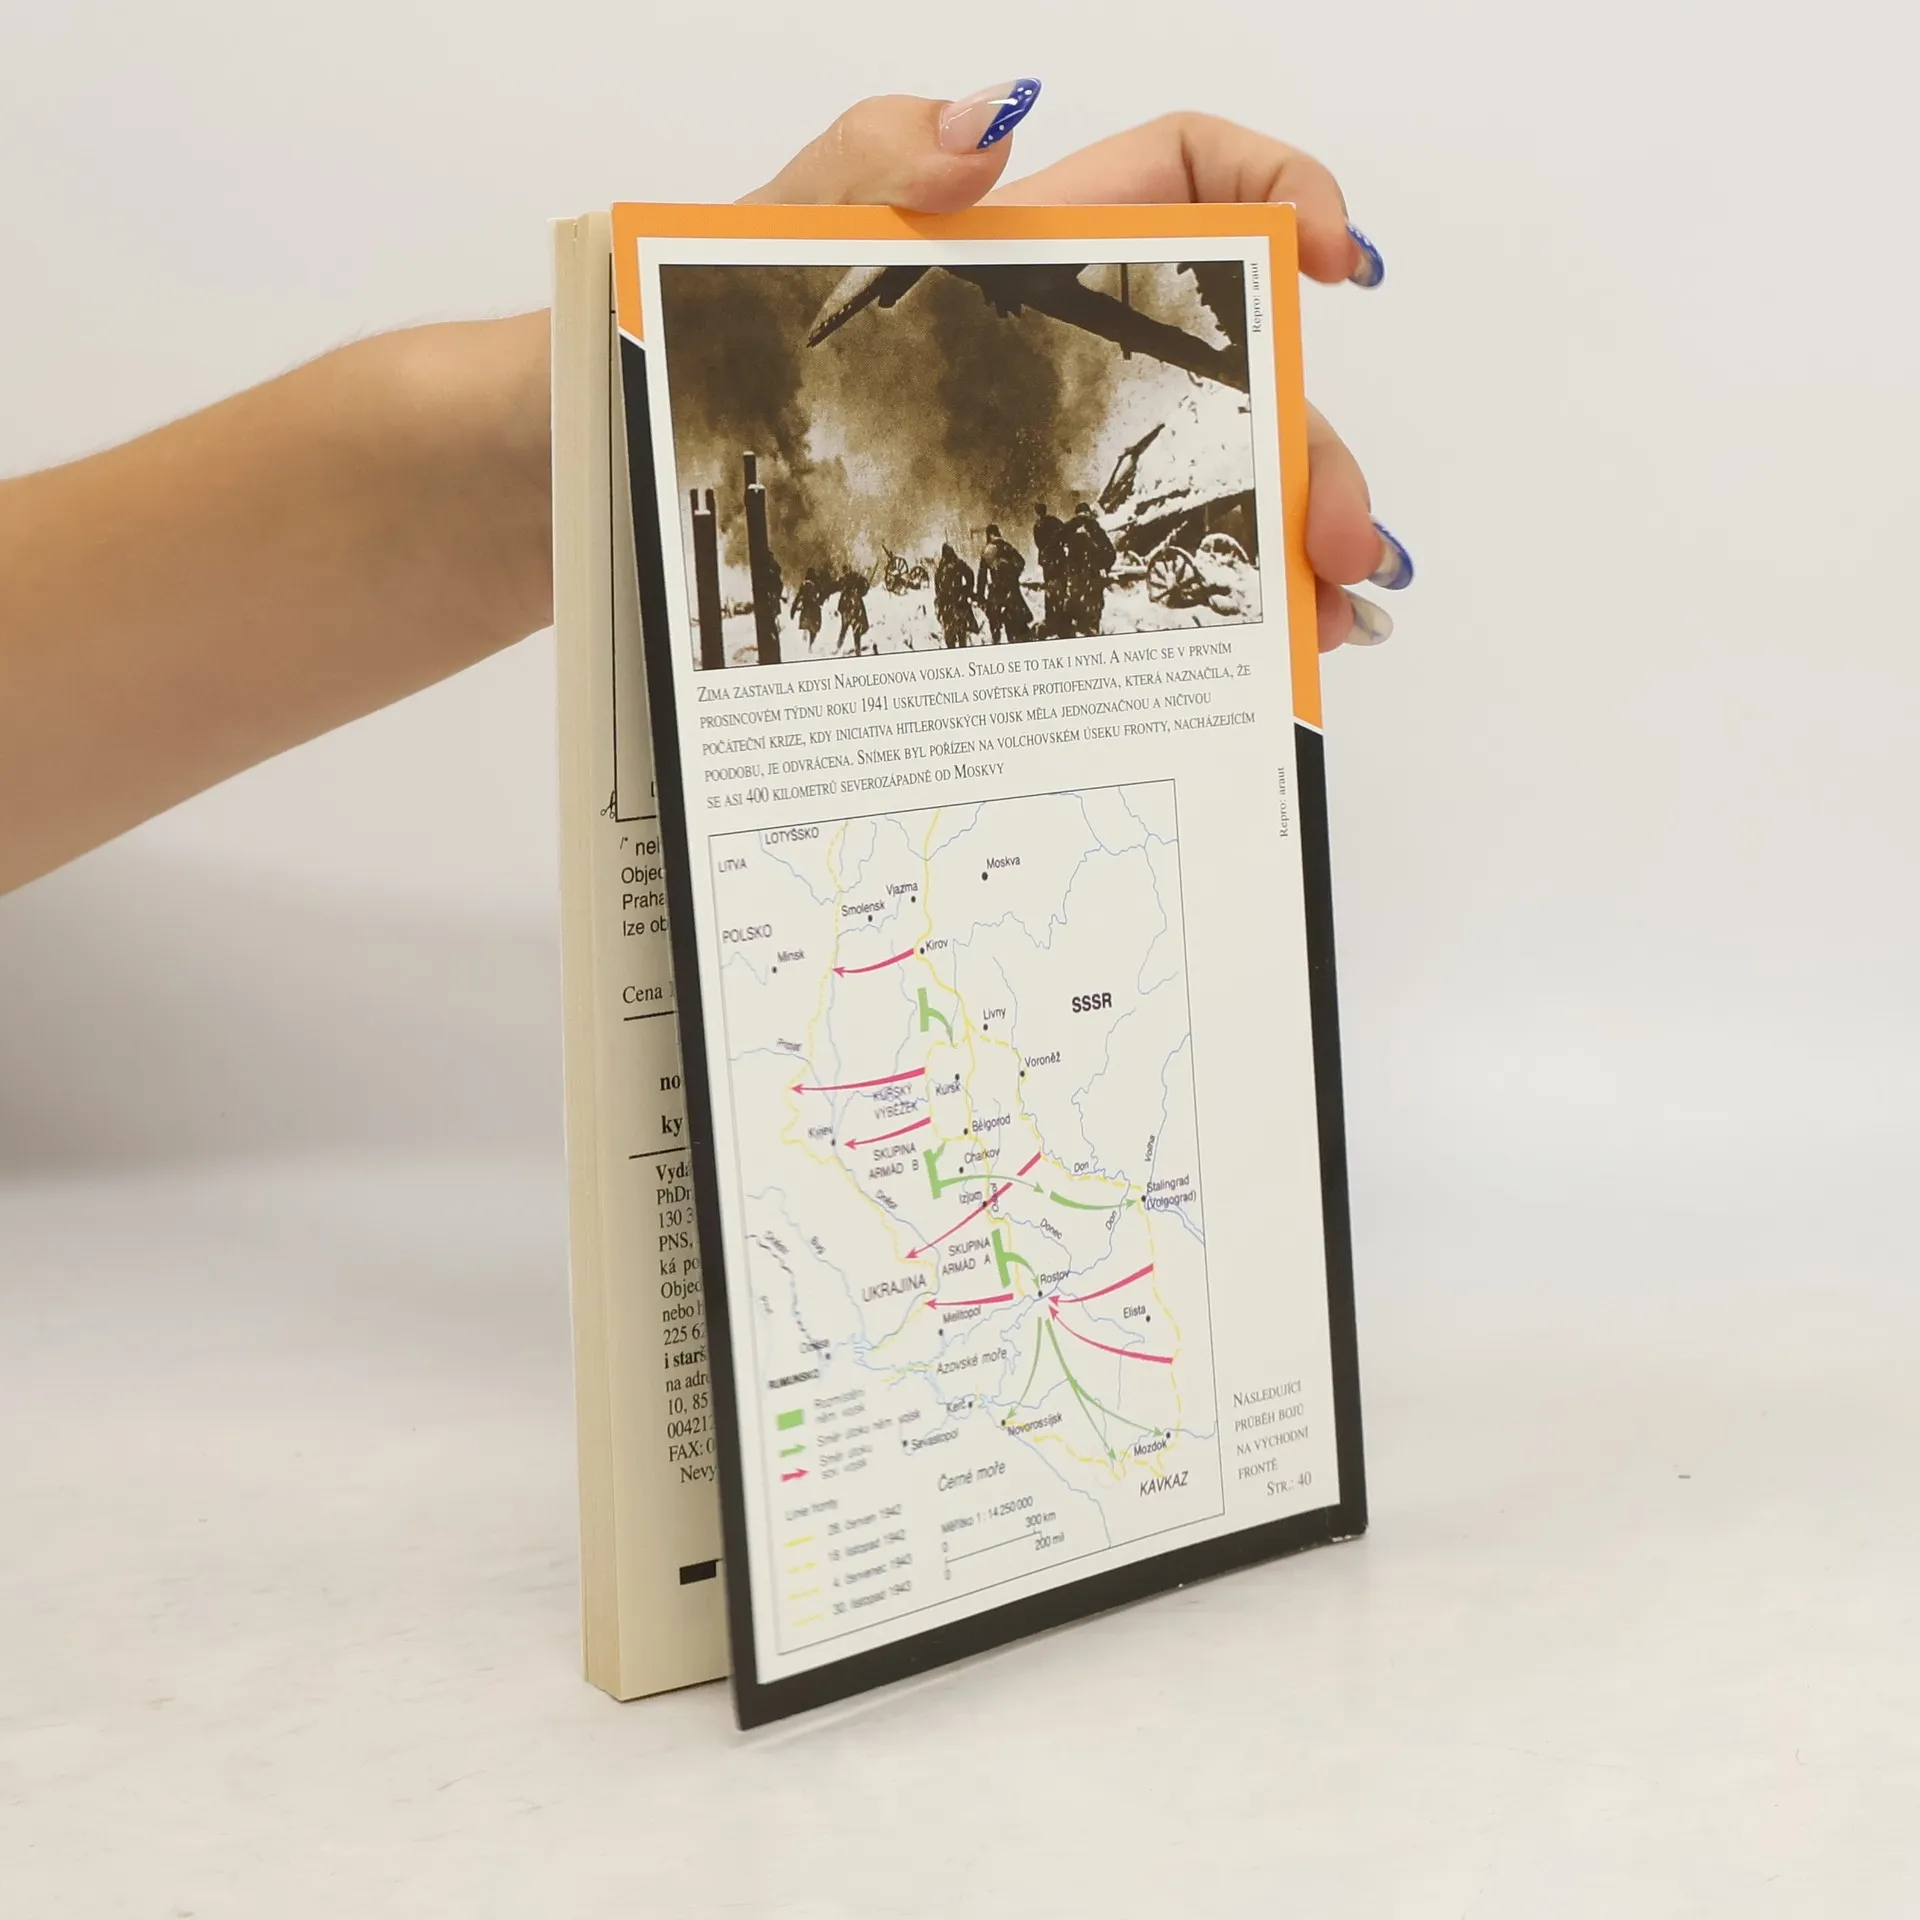 Repro: araut
ZIMA ZASTAVILA KDYSI NAPOLEONOVA VOJSKA. STALO SE TO TAK I NYNÍ. A NAVÍC SE V PRVNÍM
PROSINCOVÉM TÝDNU ROKU 1941 USKUTEČNILA SOVĚTSKÁ PROTIOFENZIVA, KTERÁ NAZNAČILA, ŽE
POČÁTEČNÍ KRIZE, KDY INICIATIVA HITLEROVSKÝCH VOJSK MĚLA JEDNOZNAČNOU A NIČIVOU
POODOBU, JE ODVRÁCENA. SNÍMEK BYL POŘÍZEN NA VOLCHOVSKÉM ÚSEKU FRONTY, NACHÁZEJÍCÍM
SE ASI 400 KILOMETRŮ SEVEROZÁPADNĚ OD MOSKVY
Repro: araut
LOTYŠSKO
LITVA
Moskva
Vjazma
Smolensk
POLSKO
Minsk
Kirov
SSSR
Livny
Voroněž
KURSKÝ
VÝBĚŽEK
Kursk
Kyjev
Bělgorod
SKUPINA
ARMÁD B
Charkov
Don
Volha
Izjum
Stalingrad
(Volgograd)
Don
Donec
SKUPINA
ARMÁD A
UKRAJINA
Rostov
Melitopol
Elista
Azovské moře
Kerč
Novorossijsk
Sevastopol
Mozdok
KAVKAZ
Černé moře
Rozmístění
něm vojsk
Směr útoku něm vojsk
Směr útoku
sov vojsk
Linie fronty
28. červen 1942
18. listopad 1942
4. červenec 1943
30. listopad 1943
Měřítko 1 : 14 250 000
0 300 km
0 200 mil
NÁSLEDUJÍCÍ
PRŮBĚH BOJŮ
NA VÝCHODNÍ
FRONTĚ
STR.: 40
/* nel
Objec
Praha
lze ob
Cena
no
ky
Vydá
PhDr
130 3
PNS,
ká po
Objec
nebo h
225 62
i starš
na adre
10, 85
00421
FAX: 0
Nevy